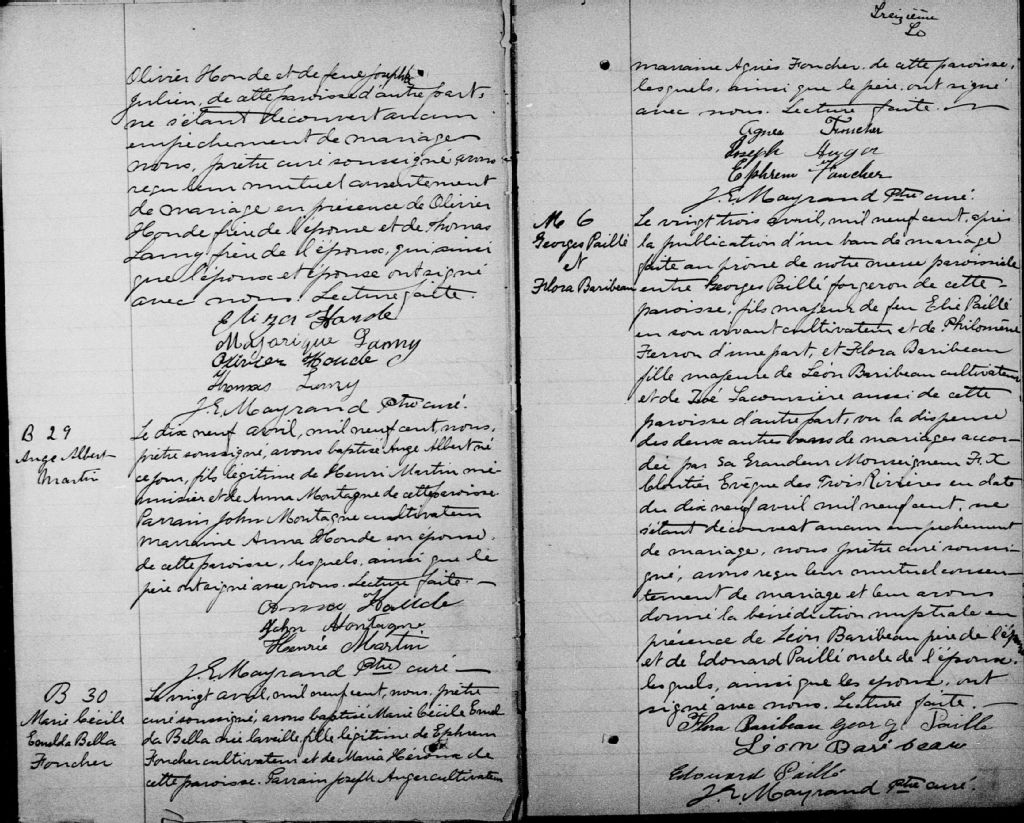 Olivier Houde et de feue Josephte
Julien, de cette paroisse d'autre part,
ne s'étant découvert aucun
empêchement de mariage
nous, prêtre curé soussigné avons
reçu leur mutuel consentement
de mariage en présence de Olivier
Houde frère de l'épouse et de Thomas
Lamy frère de l'époux, qui ainsi
que l'époux et épouse ont signé
avec nous. Lecture faite.
Eliza Houde
Majorique Lamy
Olivier Houde
Thomas Lamy
J. E. Mayrand Ptre curé.
B 29
Ange Albert
Martin
Le dix neuf avril, mil neuf cent, nous,
prêtre soussigné, avons baptisé Ange Albert né
ce jour, fils légitime de Henri Martin me-
nuisier et de Anna Montagne de cette paroisse.
Parrain John Montagne cultivateur
marraine Anna Houde son épouse,
de cette paroisse, lesquels, ainsi que le
père ont signé avec nous. Lecture faite. —
Anna Houde
John Montagne
Henrie Martin
J. E. Mayrand Ptre curé —
B 30
Marie Cécile
Emelda Bella
Foucher
Le vingt avril, mil neuf cent, nous, prêtre
curé soussigné, avons baptisé Marie Cécile Emel
da Bella née la veille, fille légitime de Ephrem
Foucher cultivateur et de Marie de
cette paroisse. Parrain Joseph Auger cultivateur
Treizième
marraine Agnès Foucher. de cette paroisse,
lesquels, ainsi que le père, ont signé
avec nous. Lecture faite. —
Agnes Foucher
Joseph Auger
Ephrem Foucher
J. E. Mayrand Ptre curé.
M 6
Georges Paillé
et
Flora Baribeau
Le vingt trois avril, mil neuf cent, après
la publication d'un ban de mariage
faite au prône de notre messe paroissiale
entre Georges Paillé forgeron de cette
paroisse, fils majeur de feu Elie Paillé
en son vivant cultivateur et de Philomène
Ferron d'une part, et Flora Baribeau
fille majeure de Léon Baribeau cultivateur
et de Zoé Lacoursière aussi de cette
paroisse d'autre part, vu la dispense
des deux autres bans de mariages accor-
dée par Sa Grandeur Monseigneur F. X
Cloutier Evêque des Trois Rivières en date
du dix neuf avril mil neuf cent, ne
s'étant découvert aucun empêchement
de mariage, nous prêtre curé soussi-
gné, avons reçu leur mutuel consen-
tement de mariage et leur avons
donné la bénédiction nuptiale en
présence de Léon Baribeau père de l'ép
et de Edouard Paillé oncle de l'époux.
lesquels, ainsi que les époux, ont
signé avec nous. Lecture faite. —
Flora Baribau Georg. Paille
Léon Baribeau
Edouard Paillé
J. E. Mayrand Ptre curé.